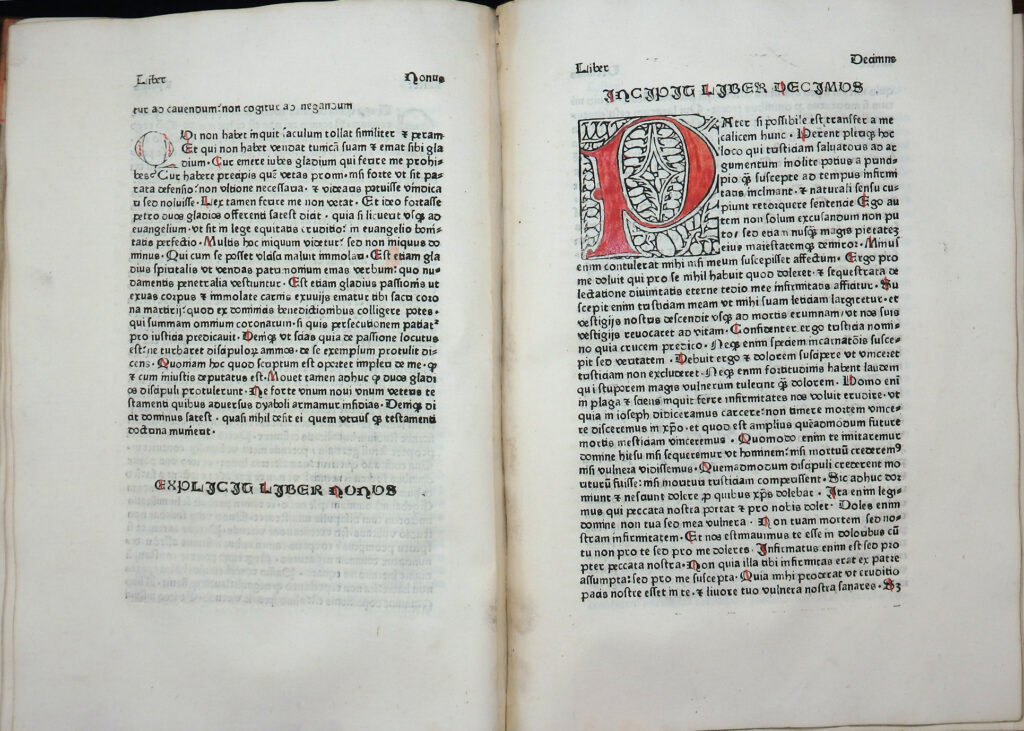 Liber Nonus
tur ad cauendum: non cogitur ad negandum
QVi non habet inquit saculum tollat similiter ⁊ peram·
Et qui non habet vendat tunicā suam ⁊ emat sibi gla
dium· Cur emere iubes gladium qui ferire me prohi
bes? Cur habere precipis quē vetas promi· nisi forte vt sit pa⸗
rata defensio: non vltione necessaria· ⁊ videatis potuisse vindica
ri sed noluisse· Lex tamen ferire me non vetat· Et ideo fortasse
petro duos gladios offerenti sat est dicit· quia si licuerit vsq̄ ad
euangelium· vt sit in lege equitatis eruditio: in euangelio boni⸗
tatis perfectio· Multis hoc iniquum videtur: sed non iniquus do
minus· Qui cum se posset vlcisci maluit immolari· Est etiam gla
dius spiritalis vt vendas patrimonium emas verbum: quo nu⸗
da mentis penetralia vestiuntur· Est etiam gladius passionis ut
exuas corpus ⁊ immolate carnis exuuijs ematur tibi sacra coro
na martirij: quod ex dominicis benedictionibus colligere potes·
qui summam omnium coronarum: si quis persecutionem patiat᷑
pro iusticia predicauit· Deniq̄ vt scias quia de passione locutus
est: ne turbaret discipuloꝝ animos· de se exemplum protulit di⸗
cens· Quoniam hoc quod scriptum est oportet impleri de me· ꝙ
⁊ cum iniustis deputatus est· Mouet tamen adhuc ꝙ duos gladi
os discipuli protulerunt· Ne forte vnum noui vnum veteris te
stamenti quibus aduersus dyaboli armamur insidias· Deniq̄ di
cit dominus sat est· quasi nihil desit ei quem vtriusq̄ testamenti
doctrina munierit·
EXPLICIT LIBER NONVS
Liber Decimus
INCIPIT LIBER DECIMVS
PAter si possibile est transfer a me
calicem hunc· Herent pleriq̄ hoc
loco qui tristiciam saluatoris ad ar
gumentum
enim contulerat mihi nisi meum suscepisset affectum· Ergo pro
me doluit qui pro se nihil habuit quod doleret· ⁊ sequestrata de
lectatione diuinitatis eterne tedio mee infirmitatis afficitur· Su
scepit enim tristiciam meam vt mihi suam leticiam largiretur· et
vestigijs nostris descendit vsq̄ ad mortis erumnam· vt nos suis
vestigijs reuocaret ad vitam· Confidenter ergo tristicia nomi⸗
no quia crucem predico· Neq̄ enim speciem incarnatiōis susce⸗
pit sed veritatem· Debuit ergo ⁊ dolorem suscipere vt vinceret
tristiciam non excluderet· Neq̄ enim fortitudinis habent laudem
qui stuporem magis vulnerum tulerint ꝙ dolorem· Homo eni
in plaga ⁊ sciens inquit ferre infirmitates nos voluit erudire· vt
quia in ioseph didiceramus carcerē: non timere mortem vince⸗
re disceremus in xp̄o· et quod est amplius quēadmodum future
mortis mesticiam vinceremus· Quomodo enim te imitaremur
domine hiesu nisi sequeremur vt hominem: nisi mortuū crederemꝰ
nisi vulnera vidissemus· Quemadmodum discipuli crederent mo
riturū fuisse: nisi morituri tristiciam comperissent· Sic adhuc dor
miunt ⁊ nesciunt dolere ꝓ quibus xp̄s dolebat· Ita enim legi⸗
mus qui peccata nostra portat ⁊ pro nobis dolet· Doles enim
domine non tua sed mea vulnera· Non tuam mortem sed no⸗
stram infirmitatem· Et nos estimauimus te esse in doloribus cū
tu non pro te sed pro me doleres· Infirmatus enim est sed pro
pter peccata nostra· Non quia illa tibi infirmitas erat ex patre
assumpta: sed pro me suscepta· Quia mihi proderat vt eruditio
pacis nostre esset in te· ⁊ liuore tuo vulnera nostra sanares· Sꝫ